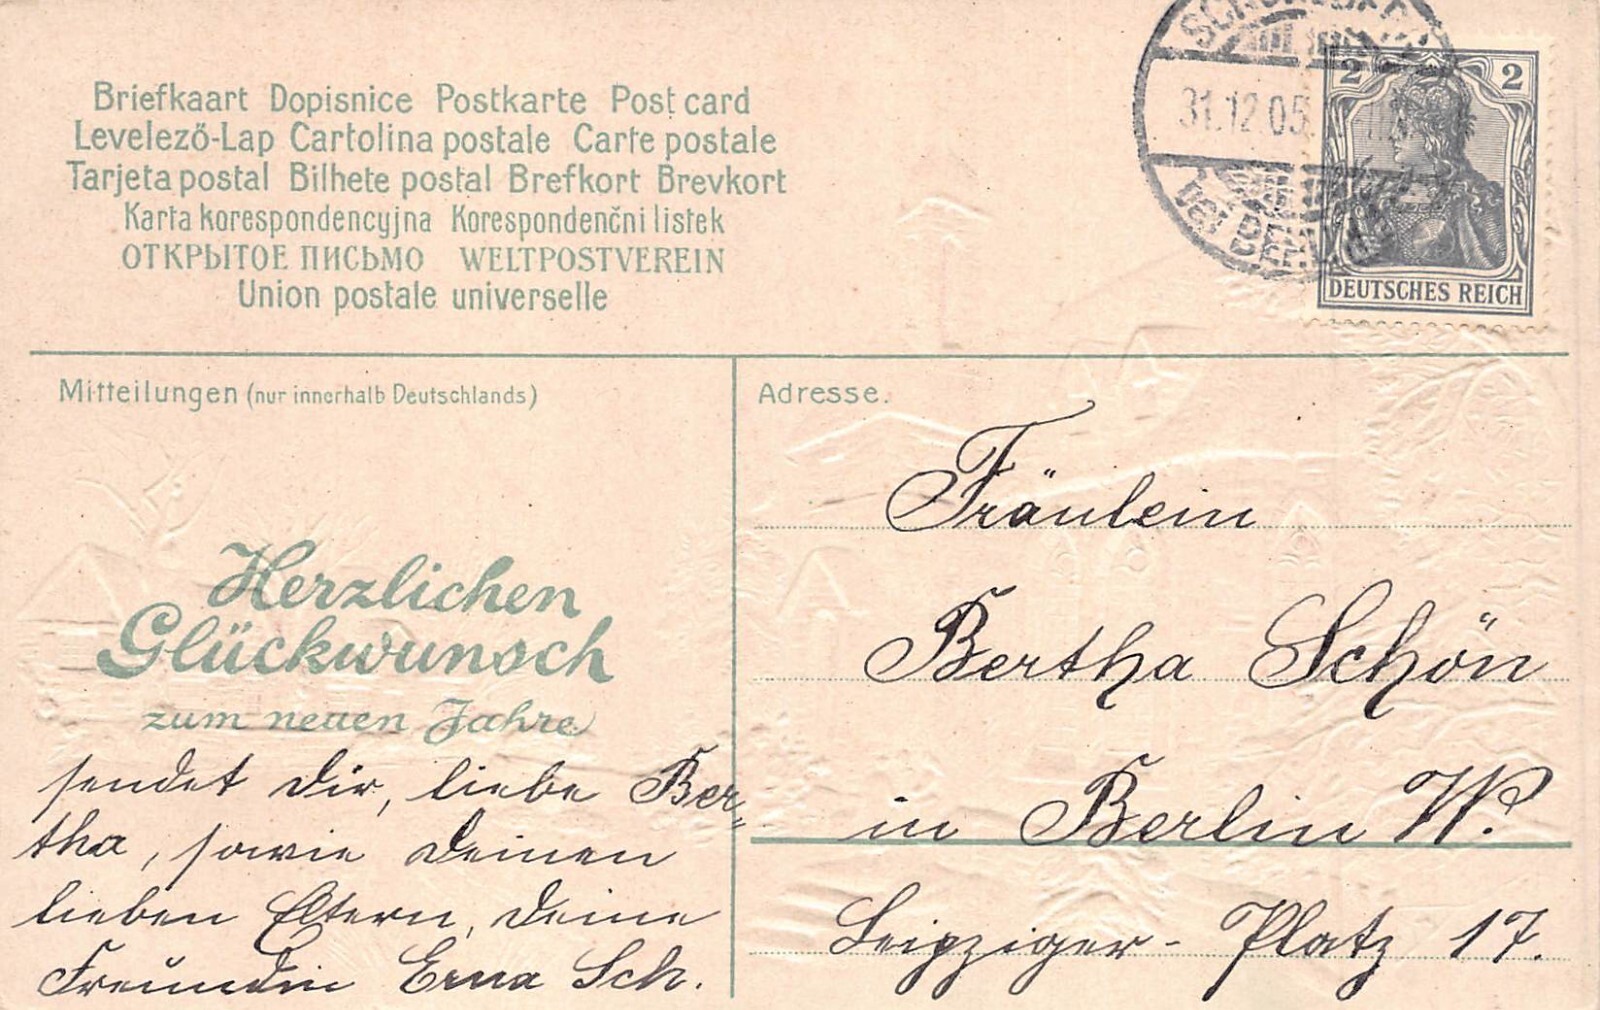 Briefkaart Dopisnice Postkarte Post card
Levelező-Lap Cartolina postale Carte postale
Tarjeta postal Bilhete postal Brefkort Brevkort
Karta korespondencyjna Korespondenčni listek
ОТКРЫТОЕ ПИСЬМО WELTPOSTVEREIN
Union postale universelle
31.12.05.
bei BERLIN
2 2
DEUTSCHES REICH
Mitteilungen (nur innerhalb Deutschlands)
Herzlichen
Glückwunsch
zum neuen Jahre
sendet Dir, liebe Ber-
tha, sowie Deinen
lieben Eltern, Deine
Freundin Erna Sch.
Adresse.
Fräulein
Bertha Schön
in Berlin W.
Leipziger-Platz 17.